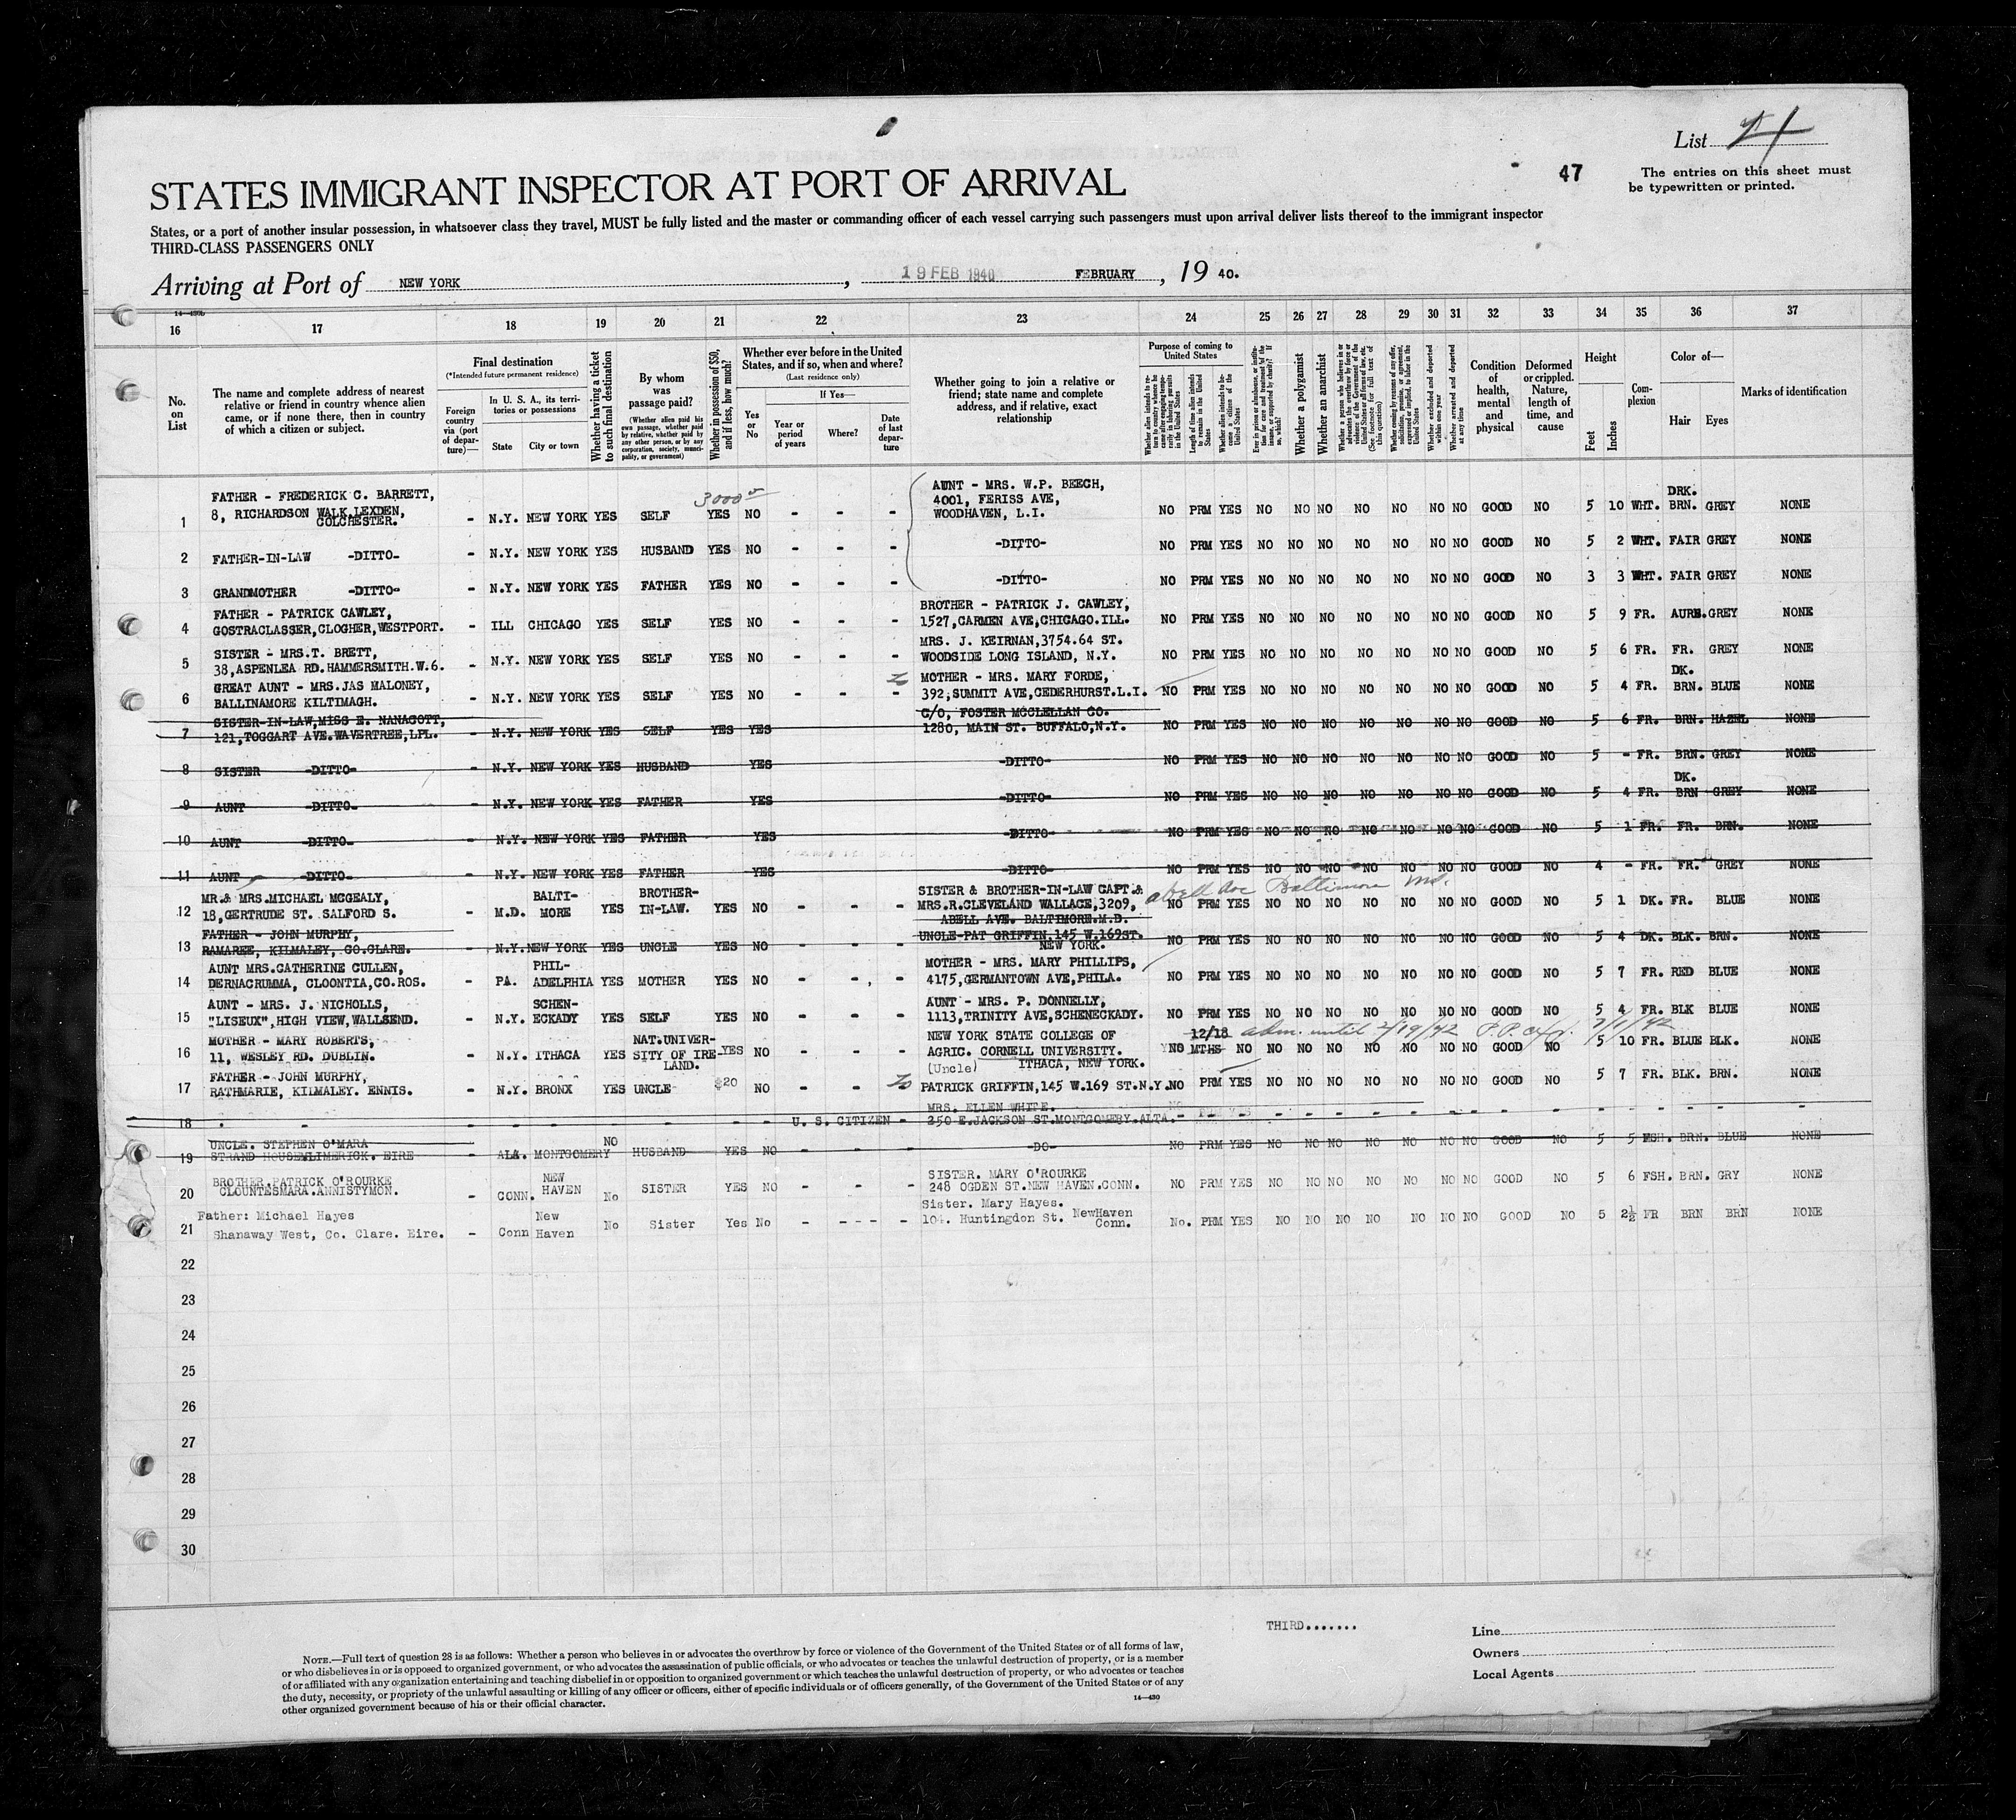 List
47
The entries on this sheet must
be typewritten or printed.
STATES IMMIGRANT INSPECTOR AT PORT OF ARRIVAL
States, or a port of another insular possession, in whatsoever class they travel, MUST be fully listed and the master or commanding officer of each vessel carrying such passengers must upon arrival deliver lists thereof to the immigrant inspector
THIRD-CLASS PASSENGERS ONLY
Arriving at Port of NEW YORK, 19 FEB 1940 FEBRUARY, 19 40.
14—430b
16 17 18 19 20 21 22 23 24 25 26 27 28 29 30 31 32 33 34 35 36 37
No. on List
The name and complete address of nearest
relative or friend in country whence alien
came, or if none there, then in country
of which a citizen or subject.
Final destination
(*Intended future permanent residence)
Foreign country via (port of departure)—
In U. S. A., its territories or possessions
State City or town
Whether having a ticket to such final destination
By whom was passage paid?
(Whether alien paid his own passage, whether paid by relative, whether paid by any other person, or by any corporation, society, municipality, or government)
Whether in possession of $50, and if less, how much?
Whether ever before in the United
States, and if so, when and where?
(Last residence only)
Yes or No
If Yes—
Year or period of years
Where?
Date of last departure
Whether going to join a relative or
friend; state name and complete
address, and if relative, exact
relationship
Purpose of coming to United States
Length of time alien intends to remain in the United States
Whether alien intends to become a citizen of the United States
Whether a polygamist
Whether an anarchist
Whether excluded and deported within one year
Whether arrested and deported at any time
Condition of health, mental and physical
Deformed or crippled. Nature, length of time, and cause
Height
Feet Inches
Complexion
Color of—
Hair Eyes
Marks of identification
FATHER - FREDERICK C. BARRETT, 3000 AUNT - MRS. W.P. BEECH, DRK.
1 8, RICHARDSON WALK, LEXDEN, COLCHESTER. - N.Y. NEW YORK YES SELF YES NO - - - 4001, FERISS AVE, WOODHAVEN, L.I. NO PRM YES NO NO NO NO NO NO NO GOOD NO 5 10 WHT. BRN. GREY NONE
2 FATHER-IN-LAW -DITTO- - N.Y. NEW YORK YES HUSBAND YES NO - - - -DITTO- NO PRM YES NO NO NO NO NO NO NO GOOD NO 5 2 WHT. FAIR GREY NONE
3 GRANDMOTHER -DITTO- - N.Y. NEW YORK YES FATHER YES NO - - - -DITTO- NO PRM YES NO NO NO NO NO NO NO GOOD NO 3 3 WHT. FAIR GREY NONE
FATHER - PATRICK CAWLEY, BROTHER - PATRICK J. CAWLEY,
4 GOSTRACLASSER,CLOGHER,WESTPORT. - ILL CHICAGO YES SELF YES NO - - - 1527,CARMEN AVE,CHICAGO.ILL. NO PRM YES NO NO NO NO NO NO NO GOOD NO 5 9 FR. AURN.GREY NONE
SISTER - MRS.T. BRETT, MRS. J. KEIRNAN,3754.64 ST.
5 38,ASPENLEA RD.HAMMERSMITH.W.6. - N.Y. NEW YORK YES SELF YES NO - - - WOODSIDE LONG ISLAND, N.Y. NO PRM YES NO NO NO NO NO NO NO GOOD NO 5 6 FR. FR. GREY NONE
GREAT AUNT - MRS.JAS MALONEY, MOTHER - MRS. MARY FORDE, DK.
6 BALLINAMORE KILTIMAGH. - N.Y. NEW YORK YES SELF YES NO - - - 392,SUMMIT AVE,CEDERHURST.L.I. NO PRM YES NO NO NO NO NO NO NO GOOD NO 5 4 FR. BRN. BLUE NONE
SISTER-IN-LAW,MISS E. NANAGOTT, C/O, FOSTER MCCLELLAN CO.
7 121,TOGGART AVE.WAVERTREE,LPL. - N.Y. NEW YORK YES SELF YES YES 1280, MAIN ST. BUFFALO,N.Y. NO PRM YES NO NO NO NO NO NO NO GOOD NO 5 6 FR. BRN. HAZEL NONE
8 SISTER -DITTO- - N.Y. NEW YORK YES HUSBAND YES -DITTO- NO PRM YES NO NO NO NO NO NO NO GOOD NO 5 - FR. BRN. GREY NONE
DK.
9 AUNT -DITTO- - N.Y. NEW YORK YES FATHER YES -DITTO- NO PRM YES NO NO NO NO NO NO NO GOOD NO 5 4 FR. BRN GREY NONE
10 AUNT -DITTO- - N.Y. NEW YORK YES FATHER YES -DITTO- NO PRM YES NO NO NO NO NO NO NO GOOD NO 5 1 FR. FR. BRN. NONE
11 AUNT -DITTO- - N.Y. NEW YORK YES FATHER YES -DITTO- NO PRM YES NO NO NO NO NO NO NO GOOD NO 4 - FR. FR. GREY NONE
MR.& MRS.MICHAEL MCGEALY, BALTI- BROTHER- SISTER & BROTHER-IN-LAW CAPT.& Abell Ave Baltimore Md.
12 18,GERTRUDE ST. SALFORD S. - M.D. MORE YES IN-LAW. YES NO - - - MRS.R.CLEVELAND WALLACE,3209, NO PRM YES NO NO NO NO NO NO NO GOOD NO 5 1 DK. FR. BLUE NONE
ABELL AVE. BALTIMORE.M.D.
FATHER - JOHN MURPHY, UNCLE-PAT GRIFFIN,145 W.169ST.
13 RAMAREE, KILMALEY, CO.CLARE. - N.Y.NEW YORK YES UNCLE YES NO - - - NEW YORK. NO PRM YES NO NO NO NO NO NO NO GOOD NO 5 4 DK. BLK. BRN. NONE
AUNT MRS.CATHERINE CULLEN, PHIL- MOTHER - MRS. MARY PHILLIPS,
14 DERNACRUMMA, CLOONTIA,CO.ROS. - PA. ADELPHIA YES MOTHER YES NO - - - 4175,GERMANTOWN AVE,PHILA. NO PRM YES NO NO NO NO NO NO NO GOOD NO 5 7 FR. RED BLUE NONE
AUNT - MRS. J. NICHOLLS, SCHEN- AUNT - MRS. P. DONNELLY,
15 "LISEUX",HIGH VIEW,WALLSEND. - N.Y. ECKADY YES SELF YES NO - - - 1113,TRINITY AVE,SCHENECKADY. NO PRM YES NO NO NO NO NO NO NO GOOD NO 5 4 FR. BLK BLUE NONE
MOTHER - MARY ROBERTS, NAT.UNIVER- NEW YORK STATE COLLEGE OF 12/18 adm. until 2/19/42 P.P. exp.
16 11, WESLEY RD. DUBLIN. - N.Y. ITHACA YES SITY OF IRE- YES NO - - - AGRIC. CORNELL UNIVERSITY. NO MTHS NO NO NO NO NO NO NO NO GOOD NO 5 10 FR. BLUE BLK. NONE
LAND. (Uncle) ITHACA, NEW YORK.
FATHER - JOHN MURPHY,
17 RATHMARIE, KILMALEY. ENNIS. - N.Y. BRONX YES UNCLE $20 NO - - - PATRICK GRIFFIN,145 W.169 ST.N.Y. NO PRM YES NO NO NO NO NO NO NO GOOD NO 5 7 FR. BLK. BRN. NONE
MRS. ELLEN WHITE.
18 - - - - - - - U. S. CITIZEN - 250 E.JACKSON ST.MONTGOMERY.ALTA. - - - - - - - - - - - - - - - - - -
UNCLE. STEPHEN O'MARA NO
19 STRAND HOUSE LIMERICK. EIRE - ALA. MONTGOMERY HUSBAND YES NO - - - -DO- NO PRM YES NO NO NO NO NO NO NO GOOD NO 5 5 FSH. BRN. BLUE NONE
BROTHER.PATRICK O'ROURKE NEW SISTER. MARY O'ROURKE
20 CLOUNTESMARA.ANNISTYMON. - CONN. HAVEN No SISTER YES NO - - - 248 OGDEN ST.NEW HAVEN.CONN. NO PRM YES NO NO NO NO NO NO NO GOOD NO 5 6 FSH. BRN. GRY NONE
Father: Michael Hayes New Sister. Mary Hayes.
21 Shanaway West, Co. Clare. Eire. - Conn Haven No Sister Yes No - - - - - 104. Huntingdon St. NewHaven Conn. No. PRM YES NO NO NO NO NO NO NO GOOD NO 5 2½ FR BRN BRN NONE
22
23
24
25
26
27
28
29
30
THIRD.......
Line
Owners
Local Agents
NOTE.—Full text of question 28 is as follows: Whether a person who believes in or advocates the overthrow by force or violence of the Government of the United States or of all forms of law,
or who disbelieves in or is opposed to organized government, or who advocates the assassination of public officials, or who advocates or teaches the unlawful destruction of property, or is a member
of or affiliated with any organization entertaining and teaching disbelief in or opposition to organized government or which teaches the unlawful destruction of property, or who advocates or teaches
the duty, necessity, or propriety of the unlawful assaulting or killing of any officer or officers, either of specific individuals or of officers generally, of the Government of the United States or of any
other organized government because of his or their official character.
14—430